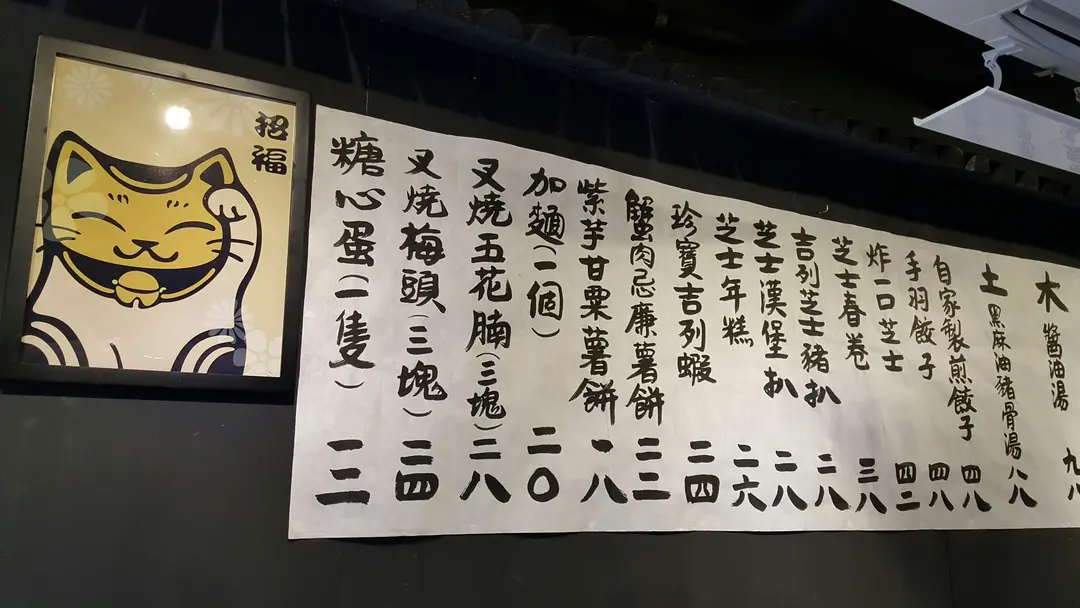 木 醬油湯 九八
土 黑麻油豬骨湯 八八
自家製煎餃子 四八
手羽餃子 四八
炸一口芝士 四二
芝士春卷 三八
吉列芝士豬扒 二八
芝士漢堡扒 二八
芝士年糕 二六
珍寶吉列蝦 二四
蟹肉忌廉薯餅 二二
紫芋甘栗薯餅 一八
加麵(一個) 二〇
叉燒五花腩(三塊) 二八
叉燒梅頭(三塊) 二四
糖心蛋(一隻) 一二
招福